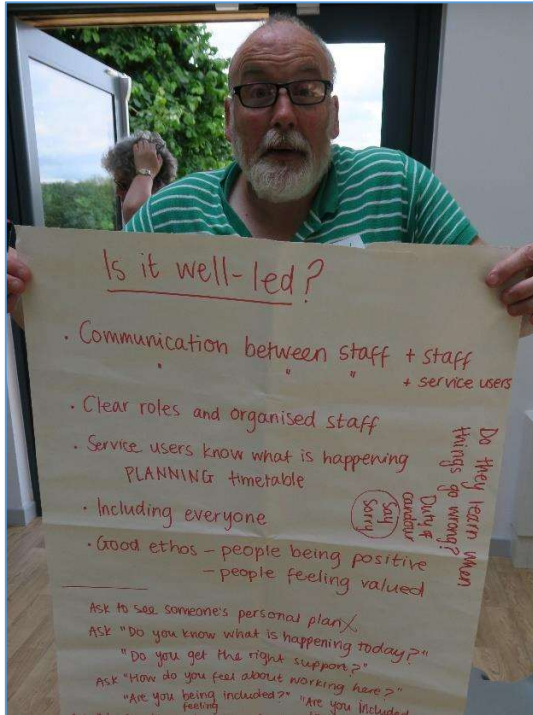 Is it well-led?
· Communication between staff + staff
" " " + service users
· Clear roles and organised staff
· Service users know what is happening
PLANNING timetable
· Including everyone
· Good ethos – people being positive
– people feeling valued
Do they learn when
things go wrong?
Duty of
candour
Say
Sorry
Ask to see someone's personal plan
Ask "Do you know what is happening today?"
"Do you get the right support?"
Ask "How do you feel about working here?"
"Are you being included?" "Are you included
feeling